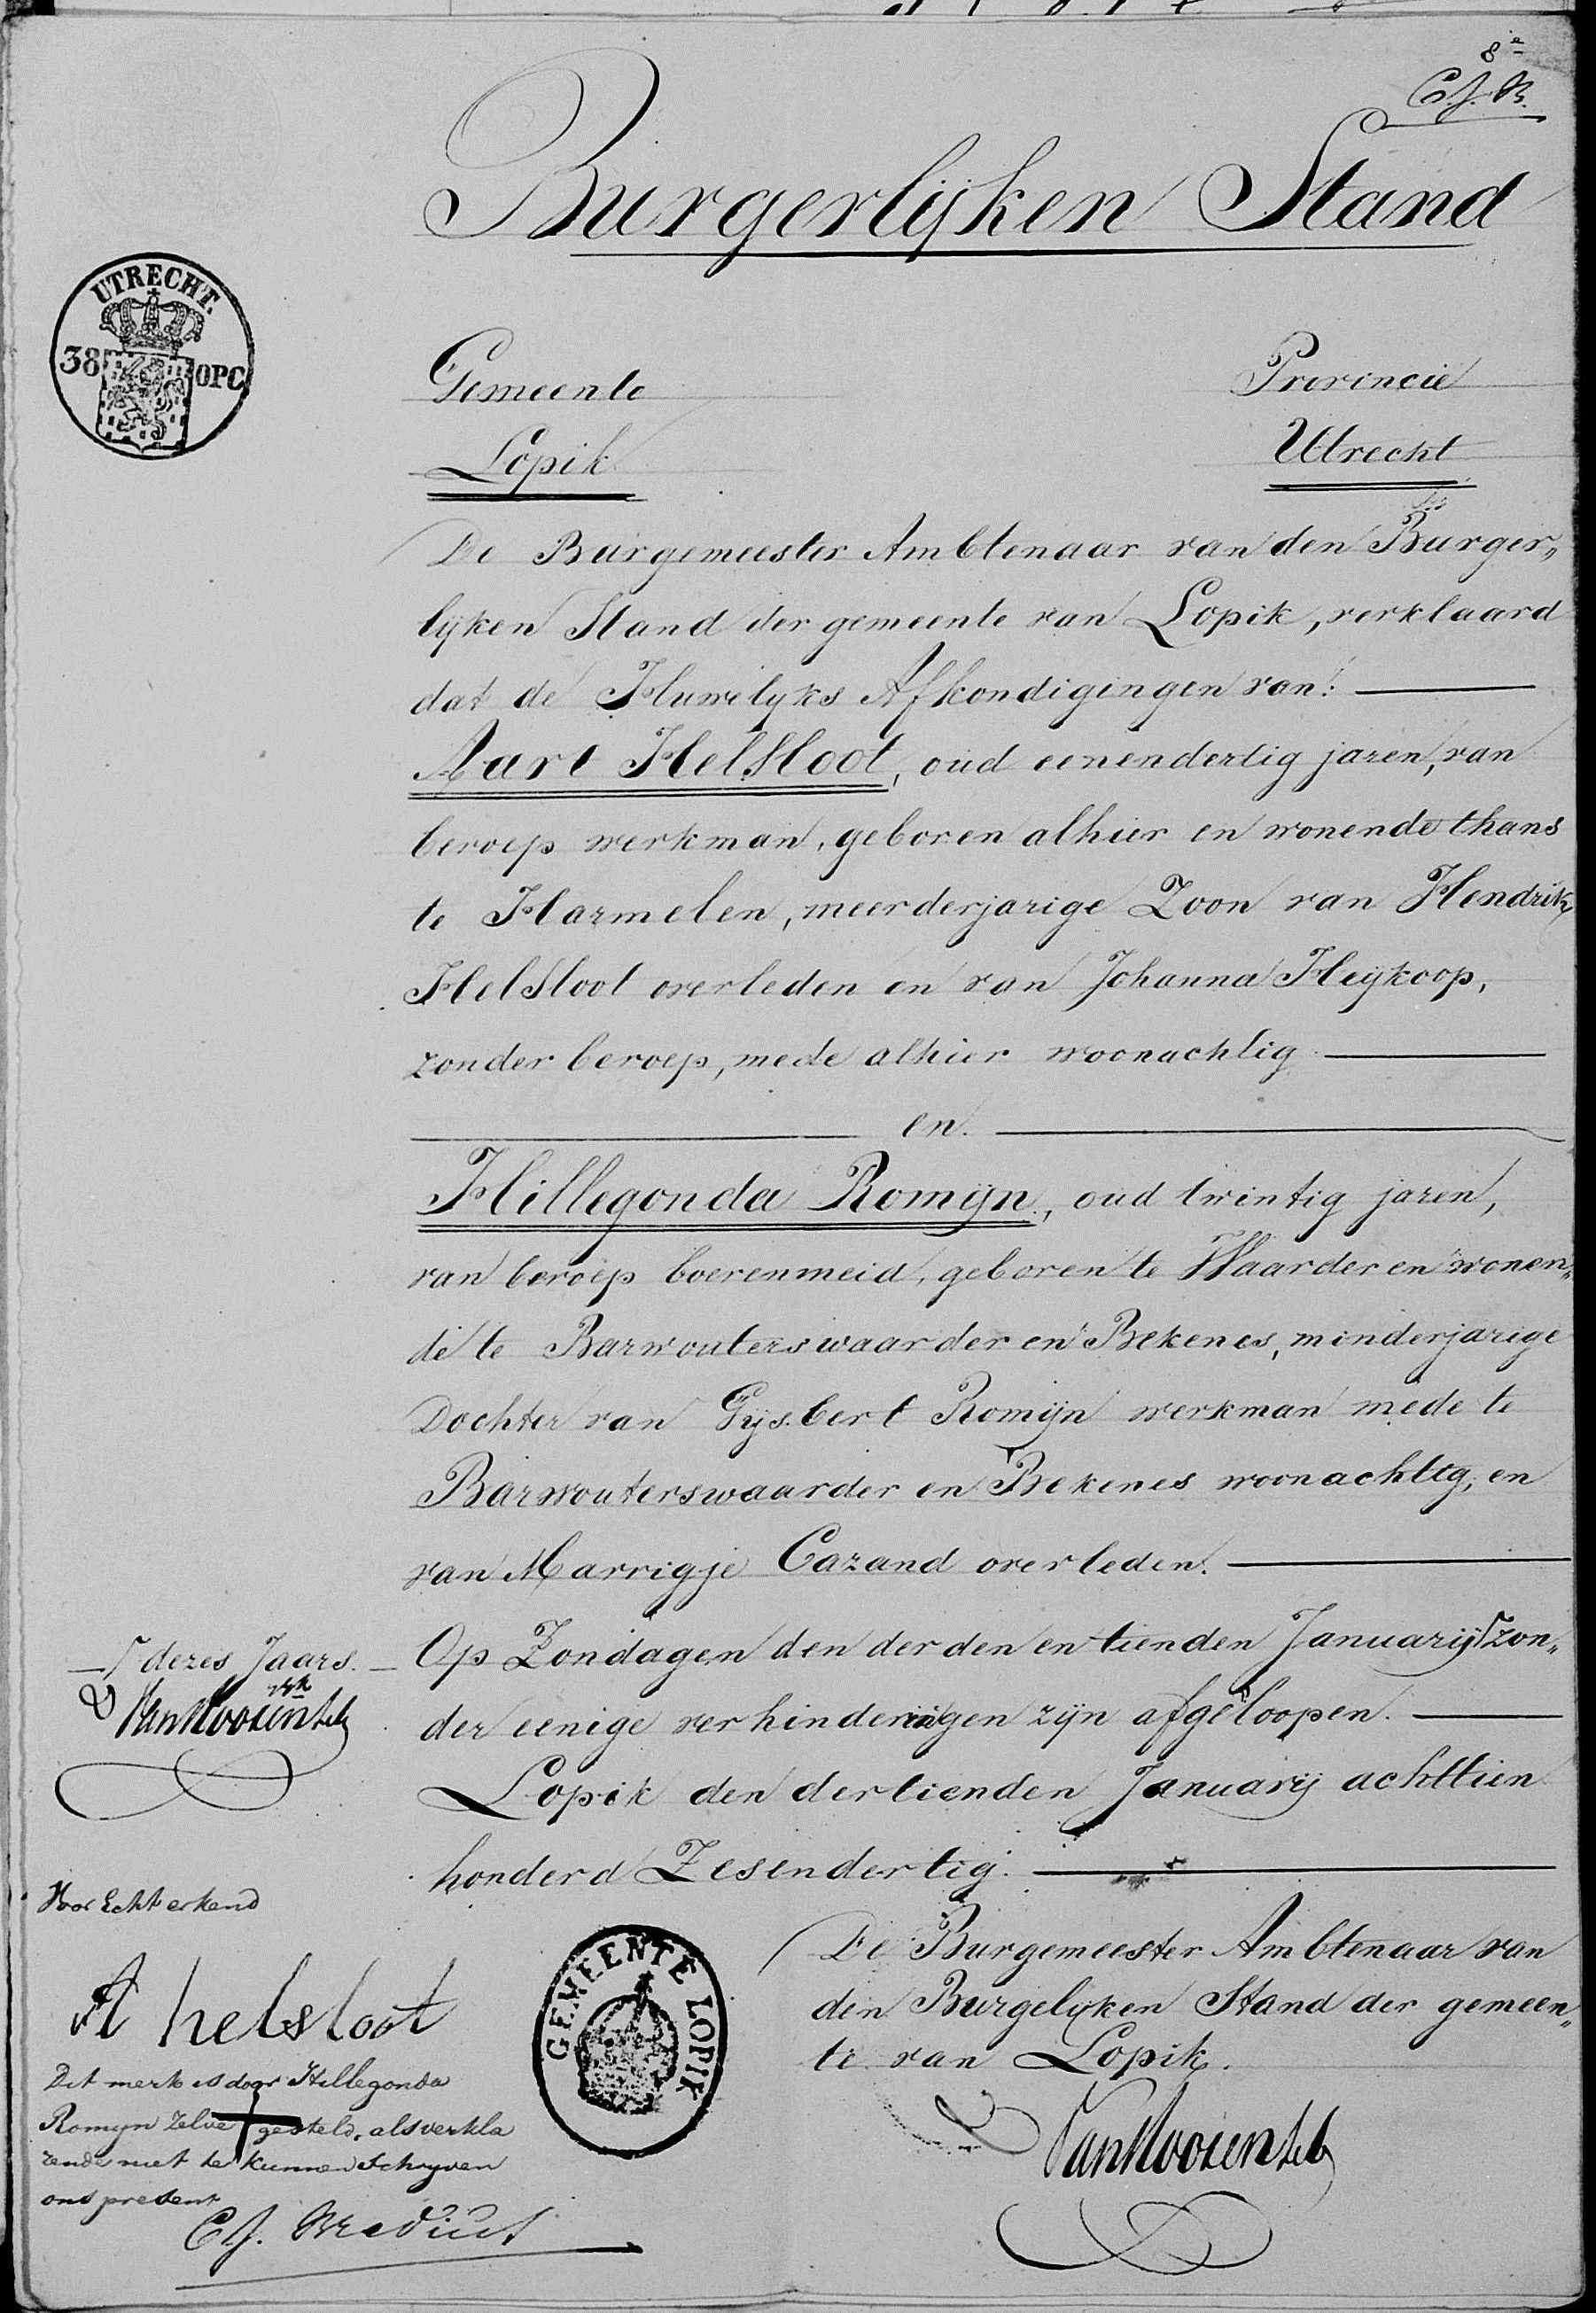 8e
C.J.B.
Burgerlijken Stand
UTRECHT.
38 OPC
Gemeente Provincie
Lopik Utrecht
De Burgemeester Ambtenaar van den Burger„
lijken Stand der gemeente van Lopik, verklaard
dat de Huwelyks Afkondigingen van:
Aart Helsloot, oud eenendertig jaren, van
beroep werkman, geboren alhier en wonende thans
te Harmelen, meerderjarige Zoon van Hendrik
Helsloot overleden en van Johanna Heijkoop,
zonder beroep, mede alhier woonachtig
en
Hillegonda Romijn, oud twintig jaren,
van beroep boerenmeid, geboren te Waarder en wonen„
de te Barwouterswaarder en Bekenes, minderjarige
Dochter van Gijsbert Romijn werkman mede te
Barwouterswaarder en Bekenes woonachtig, en
van Marrigje Cazand overleden.
Op Zondagen den derden en tienden Januarij Γ zon„
Γ dezes Jaars.
der eenige verhinderingen zijn afgeloopen.
Lopik den dertienden Januarij achttien
honderd Zesendertig.
Voor Echt erkend
A helsloot
Dit merk is door Hillegonda
Romyn zelve + gesteld, als verkla
rende niet te kunnen Schryven
ons present
C.J. Bredius
GEMEENTE LOPIK
De Burgemeester Ambtenaar van
den Burgelijken Stand der gemeen„
te van Lopik.